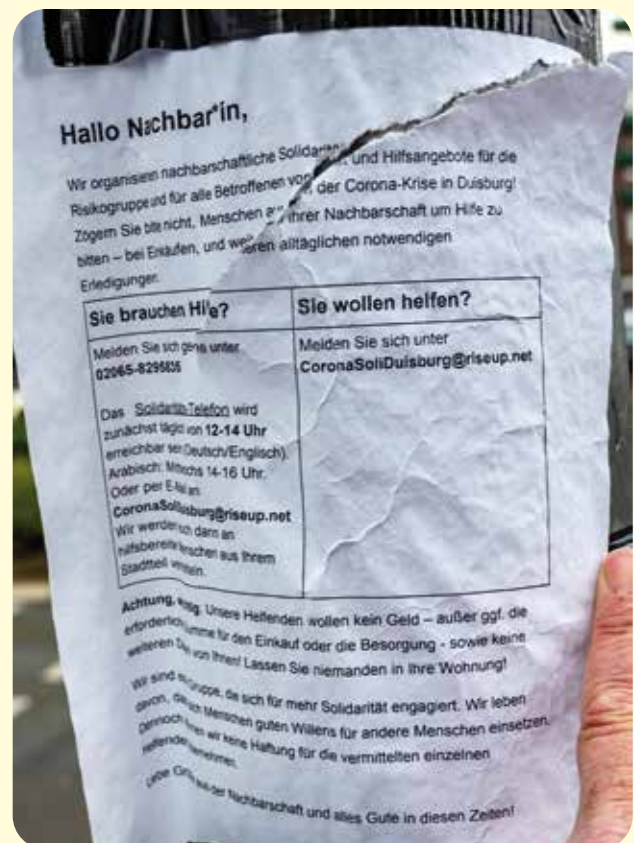 Hallo Nachbar*in,
Wir organisieren nachbarschaftliche Solidarität und Hilfsangebote für die
Risikogruppe und für alle Betroffenen von der Corona-Krise in Duisburg!
Zögern Sie bitte nicht, Menschen aus ihrer Nachbarschaft um Hilfe zu
bitten – bei Einkäufen, und weiteren alltäglichen notwendigen
Erledigungen.
Sie brauchen Hilfe?
Melden Sie sich gerne unter
Das Solidaritäts-Telefon wird
zunächst täglich von 12-14 Uhr
erreichbar sein (Deutsch/Englisch).
Arabisch: Mittwochs 14-16 Uhr.
Oder per E-Mail an
CoronaSoliDuisburg@riseup.net
Wir werden sich dann an
hilfsbereite Menschen aus Ihrem
Stadtteil
Sie wollen helfen?
Melden Sie sich unter
CoronaSoliDuisburg@riseup.net
Achtung, Unsere Helfenden wollen kein Geld – außer ggf. die
erforderliche Summe für den Einkauf oder die Besorgung - sowie keine
weiteren von Ihnen! Lassen Sie niemanden in Ihre Wohnung!
Wir sind Gruppe, die sich für mehr Solidarität engagiert. Wir leben
davon, Menschen guten Willens für andere Menschen einsetzen.
Dennoch wir keine Haftung für die vermittelten einzelnen
Helfenden übernehmen.
Liebe Grüße aus der Nachbarschaft und alles Gute in diesen Zeiten!